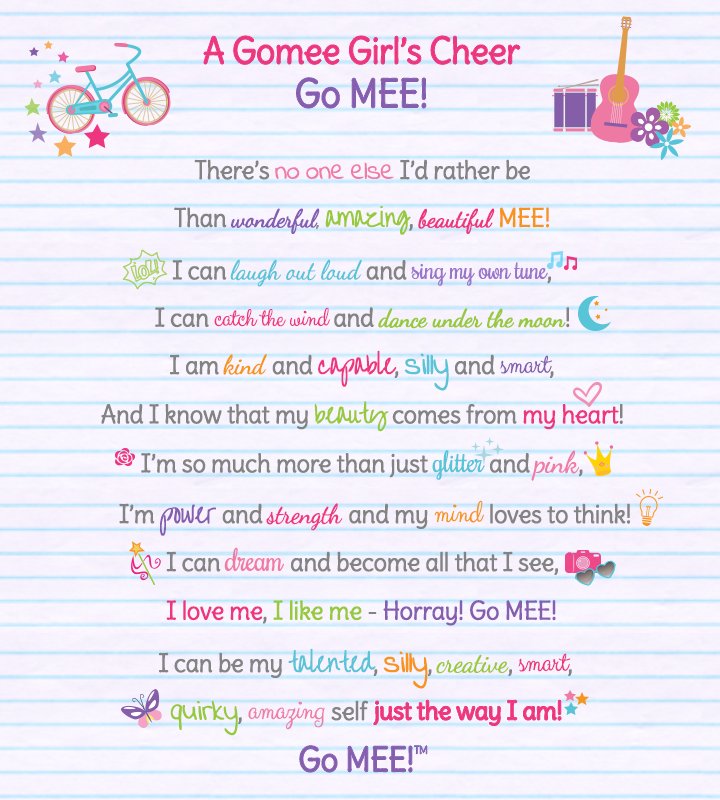 A Gomee Girl's Cheer
Go MEE!
There's no one else I'd rather be
Than wonderful, amazing, beautiful MEE!
lol! I can laugh out loud and sing my own tune,
I can catch the wind and dance under the moon!
I am kind and capable, silly and smart,
And I know that my beauty comes from my heart!
I'm so much more than just glitter and pink,
I'm power and strength and my mind loves to think!
I can dream and become all that I see,
I love me, I like me - Horray! Go MEE!
I can be my talented, silly, creative, smart,
quirky, amazing self just the way I am!
Go MEE!™